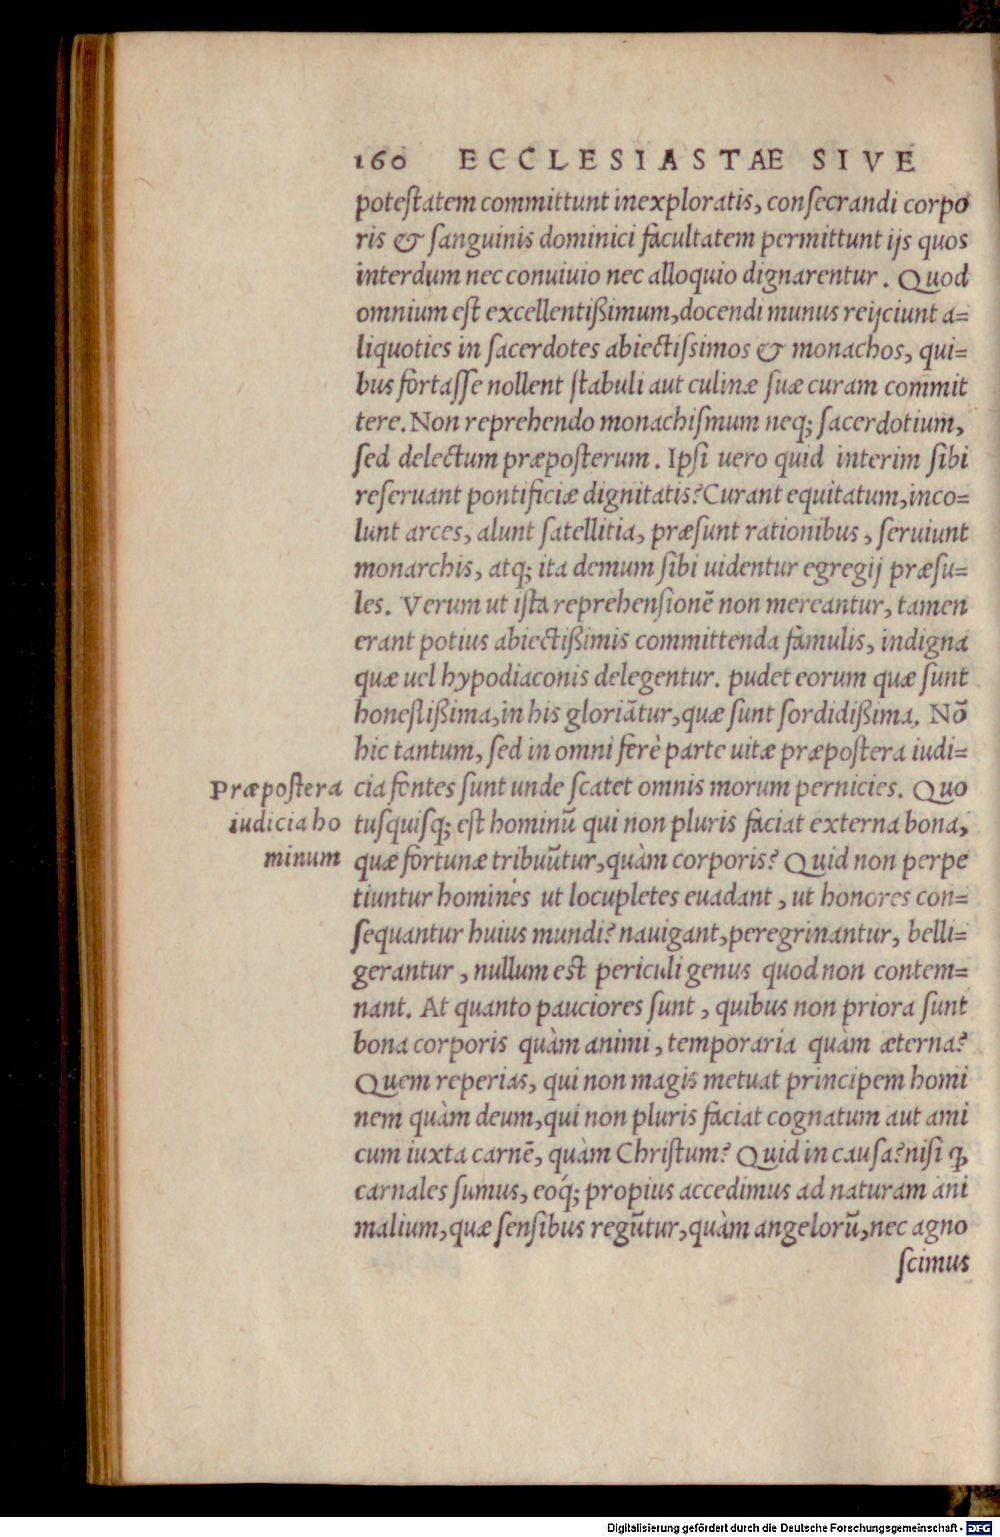 160 ECCLESIASTAE SIVE
poteſtatem committunt inexploratis, conſecrandi corpo
ris & ſanguinis dominici facultatem permittunt ijs quos
interdum nec conuiuio nec alloquio dignarentur. Quod
omnium eſt excellentißimum, docendi munus reijciunt a=
liquoties in ſacerdotes abiectiſsimos & monachos, qui=
bus fortaſſe nollent ſtabuli aut culinæ ſuæ curam commit
tere. Non reprehendo monachiſmum neq; ſacerdotium,
ſed delectum præpoſterum. Ipſi uero quid interim ſibi
reſeruant pontificiæ dignitatis? Curant equitatum, inco=
lunt arces, alunt ſatellitia, præſunt rationibus, ſeruiunt
monarchis, atq; ita demum ſibi uidentur egregij præſu=
les. Verum ut iſta reprehenſionē non mereantur, tamen
erant potius abiectißimis committenda famulis, indigna
quæ uel hypodiaconis delegentur. pudet eorum quæ ſunt
honeſtißima, in his gloriātur, quæ ſunt ſordidißima. Nō
hic tantum, ſed in omni ferè parte uitæ præpoſtera iudi=
cia fontes ſunt unde ſcatet omnis morum pernicies. Quo
Præpoſtera
iudicia ho
minum
tuſquiſq; eſt hominū qui non pluris faciat externa bona,
quæ fortunæ tribuūtur, quàm corporis? Quid non perpe
tiuntur homines ut locupletes euadant, ut honores con=
ſequantur huius mundi? nauigant, peregrinantur, belli=
gerantur, nullum est periculi genus quod non contem=
nant. At quanto pauciores ſunt, quibus non priora ſunt
bona corporis quàm animi, temporaria quàm æterna?
Quem reperias, qui non magis metuat principem homi
nem quàm deum, qui non pluris faciat cognatum aut ami
cum iuxta carnē, quàm Chriſtum? Quid in cauſa? niſi ꝙ
carnales ſumus, eoq́; propius accedimus ad naturam ani
malium, quæ ſenſibus regūtur, quàm angelorū, nec agno
ſcimus
Digitalisierung gefördert durch die Deutsche Forschungsgemeinschaft - DFG